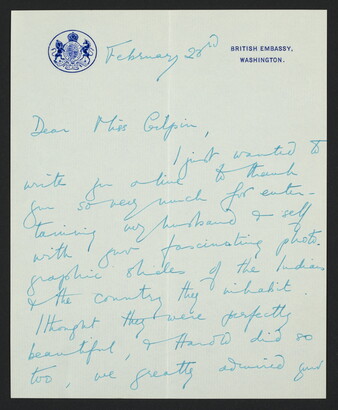 February 23rd
BRITISH EMBASSY,
WASHINGTON.
Dear Miss Gilpin,
I just wanted to
write you a line to thank
you so very much for enter-
taining my husband & self
with your fascinating photo-
graphic studies of the Indians
& the country they inhabit.
I thought they were perfectly
beautiful, & Harold did so
too, we greatly admired your